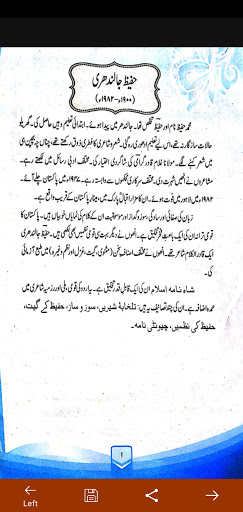 حفیظ جالندھری
(۱۹۰۰ء–۱۹۸۲ء)
محمد حفیظ نام اور حفیظ تخلص تھا۔ جالندھر میں پیدا ہوئے۔ ابتدائی تعلیم وہیں حاصل کی۔ گھریلو
حالات سازگار نہ تھے، اس لیے تعلیم ادھوری رہ گئی۔ شعر و شاعری کا فطری ذوق رکھتے تھے، چناں چہ بچپن ہی
میں شعر کہنے لگے۔ مولانا غلام قادر گرامی کی شاگردی اختیار کی۔ مختلف ادبی رسائل میں لکھتے رہے۔
مشاعروں نے انھیں شہرت دی۔ مختلف سرکاری محکموں سے وابستہ رہے۔ ۱۹۴۷ء میں پاکستان چلے آئے۔
۱۹۸۲ء میں لاہور میں فوت ہوئے۔ ان کا مزار اقبال پارک میں، مینار پاکستان کے قریب واقع ہے۔
زبان کی صفائی اور سادگی، سوز و گداز اور موسیقیت ان کے کلام کی نمایاں خوبیاں ہیں۔ پاکستان کا
قومی ترانہ ان کی ایک باعثِ فخر تخلیق ہے۔ انھوں نے دیگر بہت سی قومی نظمیں بھی لکھی ہیں۔ حفیظ جالندھری
ایک قادر الکلام شاعر تھے۔ انھوں نے مختلف اصنافِ سخن (مثنوی، گیت، غزل اور نظم وغیرہ) میں طبع آزمائی
کی۔
شاہ نامہ اسلام ان کی ایک قابلِ قدر تخلیق ہے۔ یہ اردو کی قومی، ملی اور رزمیہ شاعری میں
عمدہ اضافہ ہے۔ ان کی چند تصانیف یہ ہیں: تلخابۂ شیریں، سوز و ساز، حفیظ کے گیت،
حفیظ کی نظمیں، چیونٹی نامہ۔
۱
Left
Right